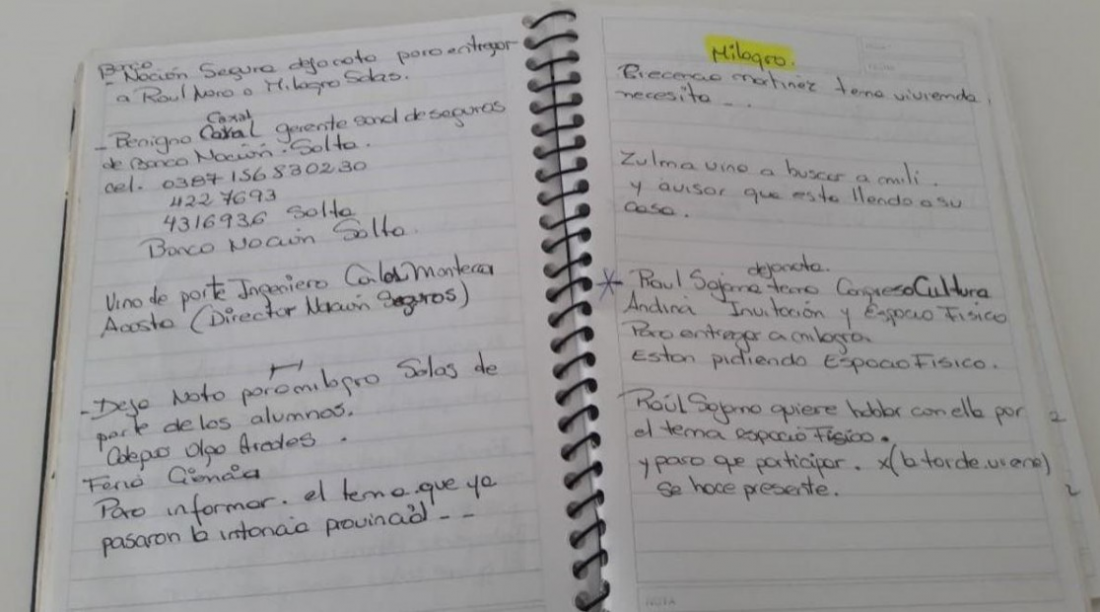 Banco
- Nación Segura dejo nota para entregar
a Raul Noro o Milagro Salas.
Casal
- Benigno gerente de seguros
de Banco Nación. Salta.
cel. 0387 156 830230
422 7693
4316936 Salta
Banco Nación Salta.
Vino de parte Ingeniero Carlos
Acosta (Director Nación Seguros)
- Dejo Nota para milagro Salas de
parte de los alumnos.
Colegio Olga Aredes.
Feria Ciencia
Para informar. el tema. que ya
pasaron la intancia provincial - -
Milagro.
martinez tema vivienda.
necesita - -
Zulma vino a buscar a mili.
y avisar que esta llendo a su
casa.
dejo nota.
* - Raul Sajama tema Congreso Cultura
Andina Invitación y Espacio Fisico
Para entregar a milagro.
Estan pidiendo Espacio Fisico.
Raúl Sajama quiere hablar con ella por 2
el tema espacio Fisico.
y para qe participar. x (la tarde. viene)
se hace presente. 2
NOTA